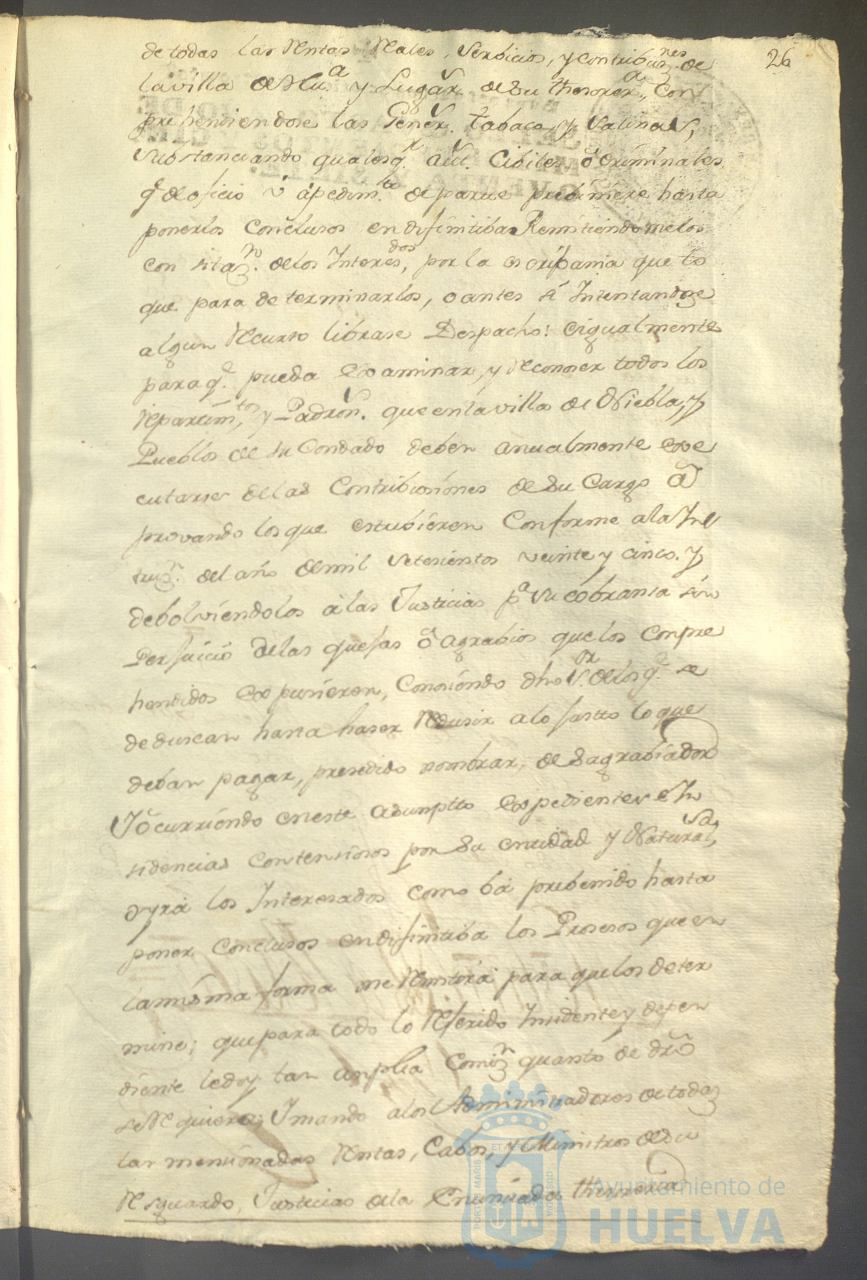 26
de todas las Rentas Reales, Serbicios, y contribus.nes de
la villa de Hu.a y Lugar.s de su thesorer.a, Con
prehendiendose las Gener.s tabaco, y Salinas,
substanciando qualesq.r aut.s Cibiles ô Criminales
q.e de oficio û âpedim.to de parte prebiniere hasta
ponerlos conclusos en difinitiba Remitiendomelos
con sitaz.n de los Interes.dos, por la escripania que to
que para determinarlos, o antes si Intentandose
algun Recurso librase Despacho: eigualmente
para q.e pueda Examinar, y Reconoser todos los
Repartim.tos, y Padron.s que en la villa de Niebla, y
Pueblos de su Condado deben anualmente exe
cutarse de las Contribusiones de su Cargo A
provando los que estubieren Conforme a la Ins
truz.n del año de mil setesientos veinte y cinco, y
debolviendolos â las Justicias p.a su cobransa sin
Perjuicio de las quejas ô agrabios que los Conpre
hendidos Expusieren, Consiendo dho S.or de los q.e se
deduscan hasta haser Redusir a lo justto lo que
deban pagar, presedido nombrar, desagrabiador
Y ôcurriendo en este asumptto Expedientes ê In
sidencias Contensiosos por su entidad y Natural.sa,
oyrá los Interesados como bá prebenido hasta
poner Conclusos en difinitiba los Prosesos que en
la misma forma me Remitirá para que los deter
mine; que para todo lo Referido Insidente y depen
diente le doy tan amplia Comiz.n quanto de dro
se Requiere; Y mando a los Administradores de todas
las mensionadas Rentas, Cabos, y Ministros de su
Resguardo, Justicias de la Enunsiada thesoreria
Ayuntamiento de
HUELVA